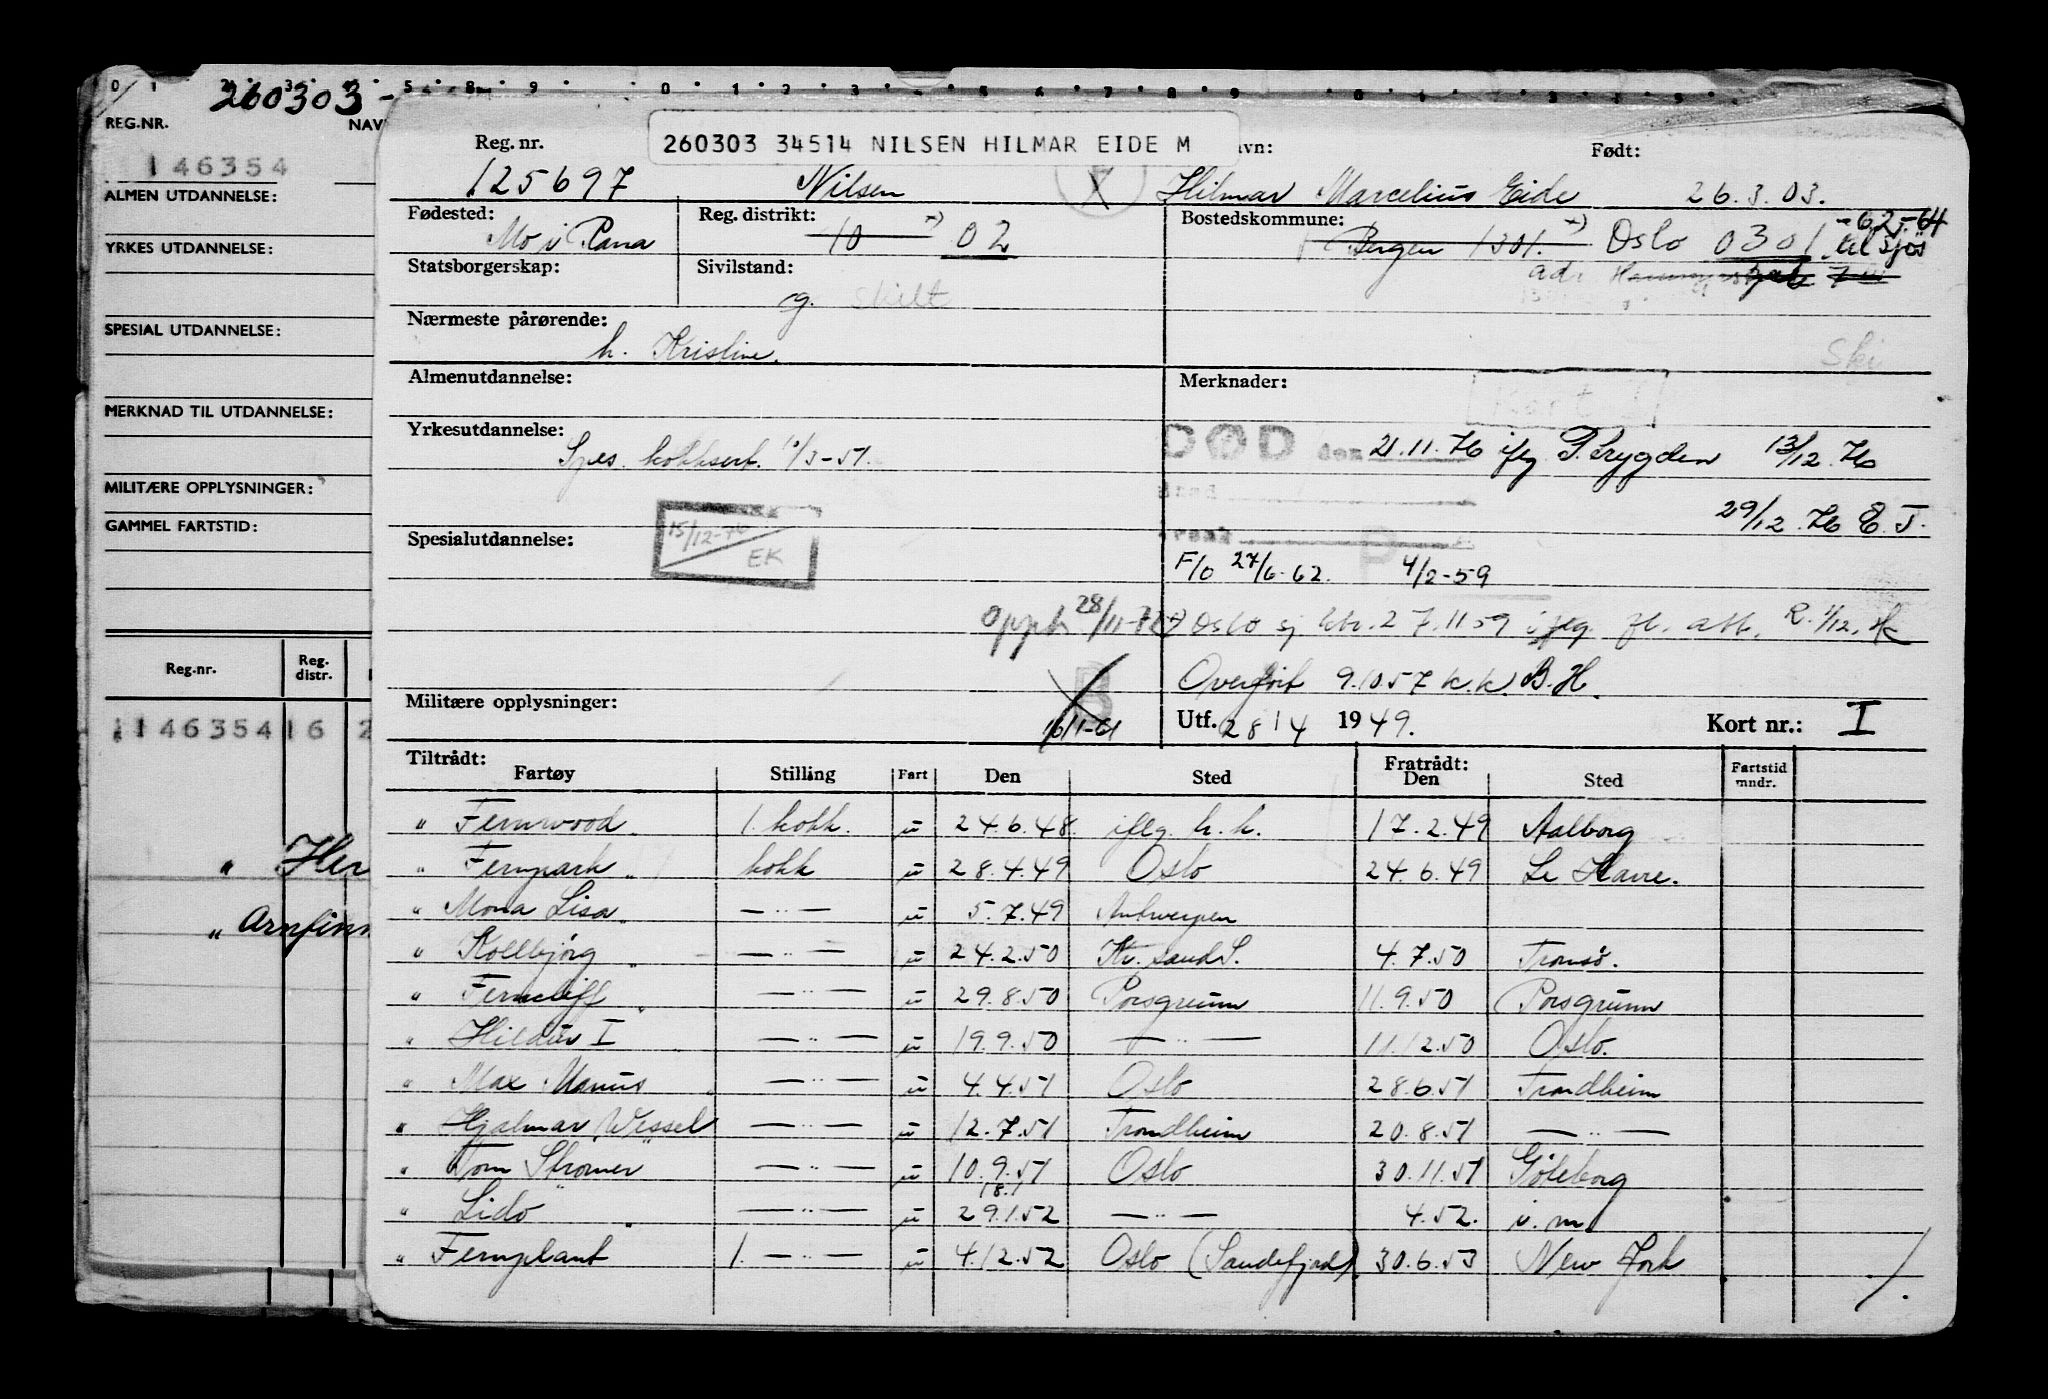 260303 -
REG.NR.
NAV
146354
ALMEN UTDANNELSE:
YRKES UTDANNELSE:
SPESIAL UTDANNELSE:
MERKNAD TIL UTDANNELSE:
MILITÆRE OPPLYSNINGER:
GAMMEL FARTSTID:
Reg.nr. Reg. distr.
146354 16 2
" Her
" Arnfinn
260303 34514 NILSEN HILMAR EIDE M
Reg. nr. avn: Født:
125697 Nilsen Hilmar Marcelius Eide 26.3.03.
Fødested: Reg. distrikt: Bostedskommune:
Mo i Rana 10 02 Bergen 1301. Oslo 0301
-62-64
Statsborgerskap: Sivilstand:
g. skilt
Nærmeste pårørende:
h. Kristine.
Ski
Almenutdannelse: Merknader:
Kort I
Yrkesutdannelse:
Spes. kokksert. 1/3-51.
DØD den 21.11.76 iflg P. Trygden 13/12.76
29/12.76 E.T.
Spesialutdannelse:
15/12-76
EK
F/O 27/6-62. 4/2-59
28/11-72
Oslo sj 27.1159
Overført 9.1057 k.k. B.H.
Militære opplysninger:
B
16/1-61
Utf. 28/4 1949. Kort nr.: I
Tiltrådt: Fratrådt:
Fartøy Stilling Fart Den Sted Den Sted Fartstid mndr.
" Fernwood 1. kokk. u 24.6.48 iflg. h.h. 17.2.49 Aalborg
" Fernpark kokk u 28.4.49 Oslo 24.6.49 Le Havre.
" Mona Lisa — " — u 5.7.49 Antwerpen
" Kollbjørg — " — u 24.2.50 Kr. sand S. 4.7.50 Tromsö.
" Ferncliff — " — u 29.8.50 Porsgrunn 11.9.50 Porsgrunn
" Hildur I — " — u 19.9.50 — " — 11.12.50 Oslo.
" Max Manus — " — u 4.4.51 Oslo 28.6.51 Trondheim
" Hjalmar Wessel — " — u 12.7.51 Trondheim 20.8.51 — " —
" Tom Strømer — " — u 10.9.51 Oslo 30.11.51 Göteborg
18.1
" Lido — " — u 29.1.52 — " — 4.52. u.m
" Fernplant 1. — " — u 4.12.52 Oslo (Sandefjord) 30.6.53 New York